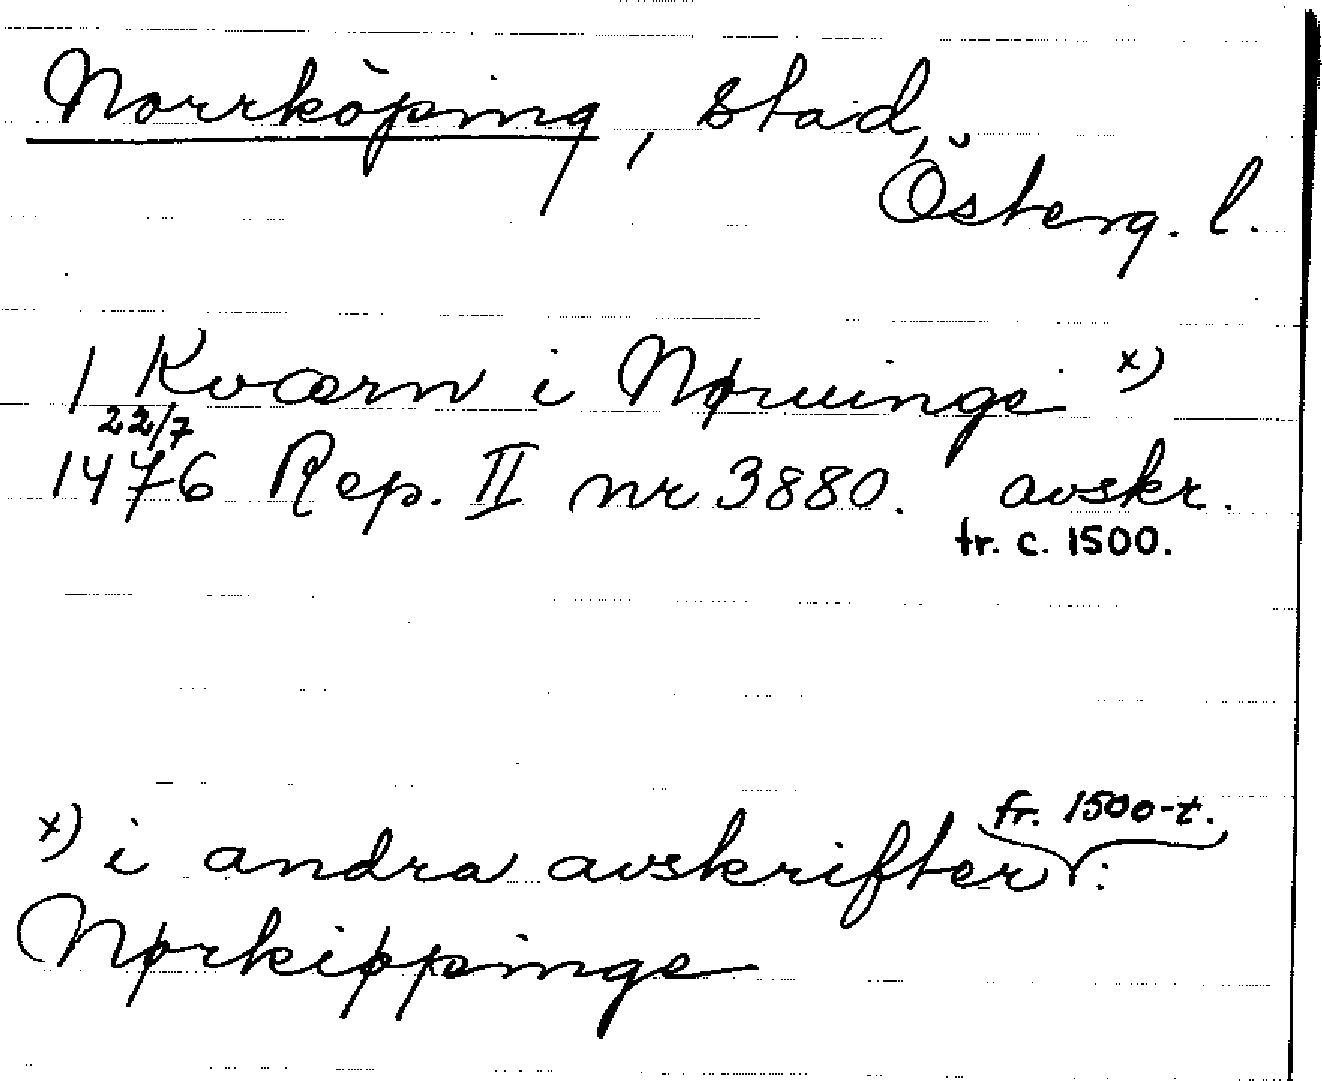 Norrköping, stad,
Österg. l.
1 Kværn i Nøruinge x)
22/7
1476 Rep. II nr 3880. avskr.
fr. c. 1500.
fr. 1500-t.
x) i andra avskrifter:
Nørkippinge